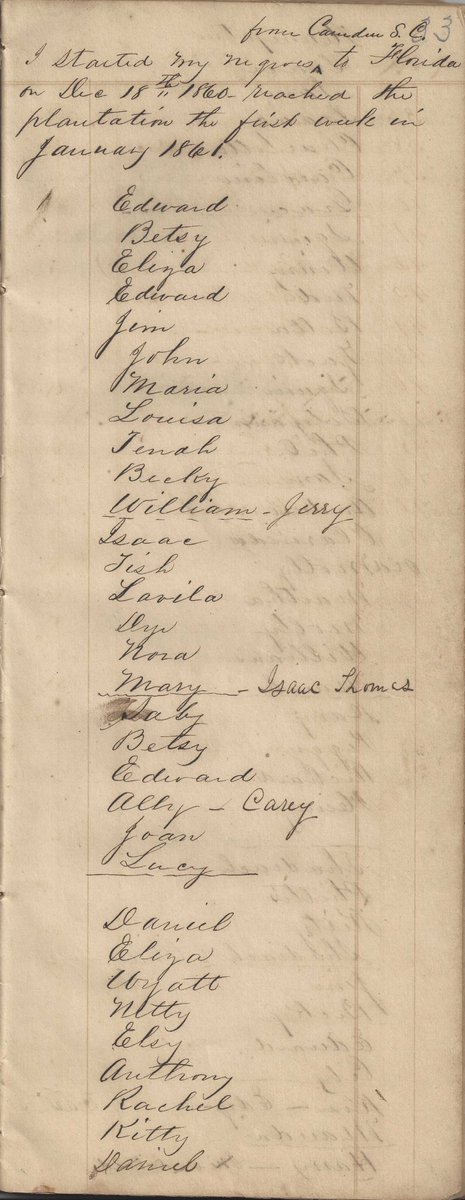 33
from Camden S.C.
I started my negroes ^ to Florida
on Dec 18th 1860 - reached the
plantation the first week in
January 1861.
Edward
Betsy
Eliza
Edward
Jim
John
Maria
Louisa
Tenah
Becky
William - Jerry
Isaac
Tish
Lavila
Dye
Nora
Mary - Isaac Thomas
Gaby
Betsy
Edward
Ally - Carey
Joan
Lucy
Daniel
Eliza
Wyatt
Netty
Elsy
Anthony
Rachel
Kitty
Daniel